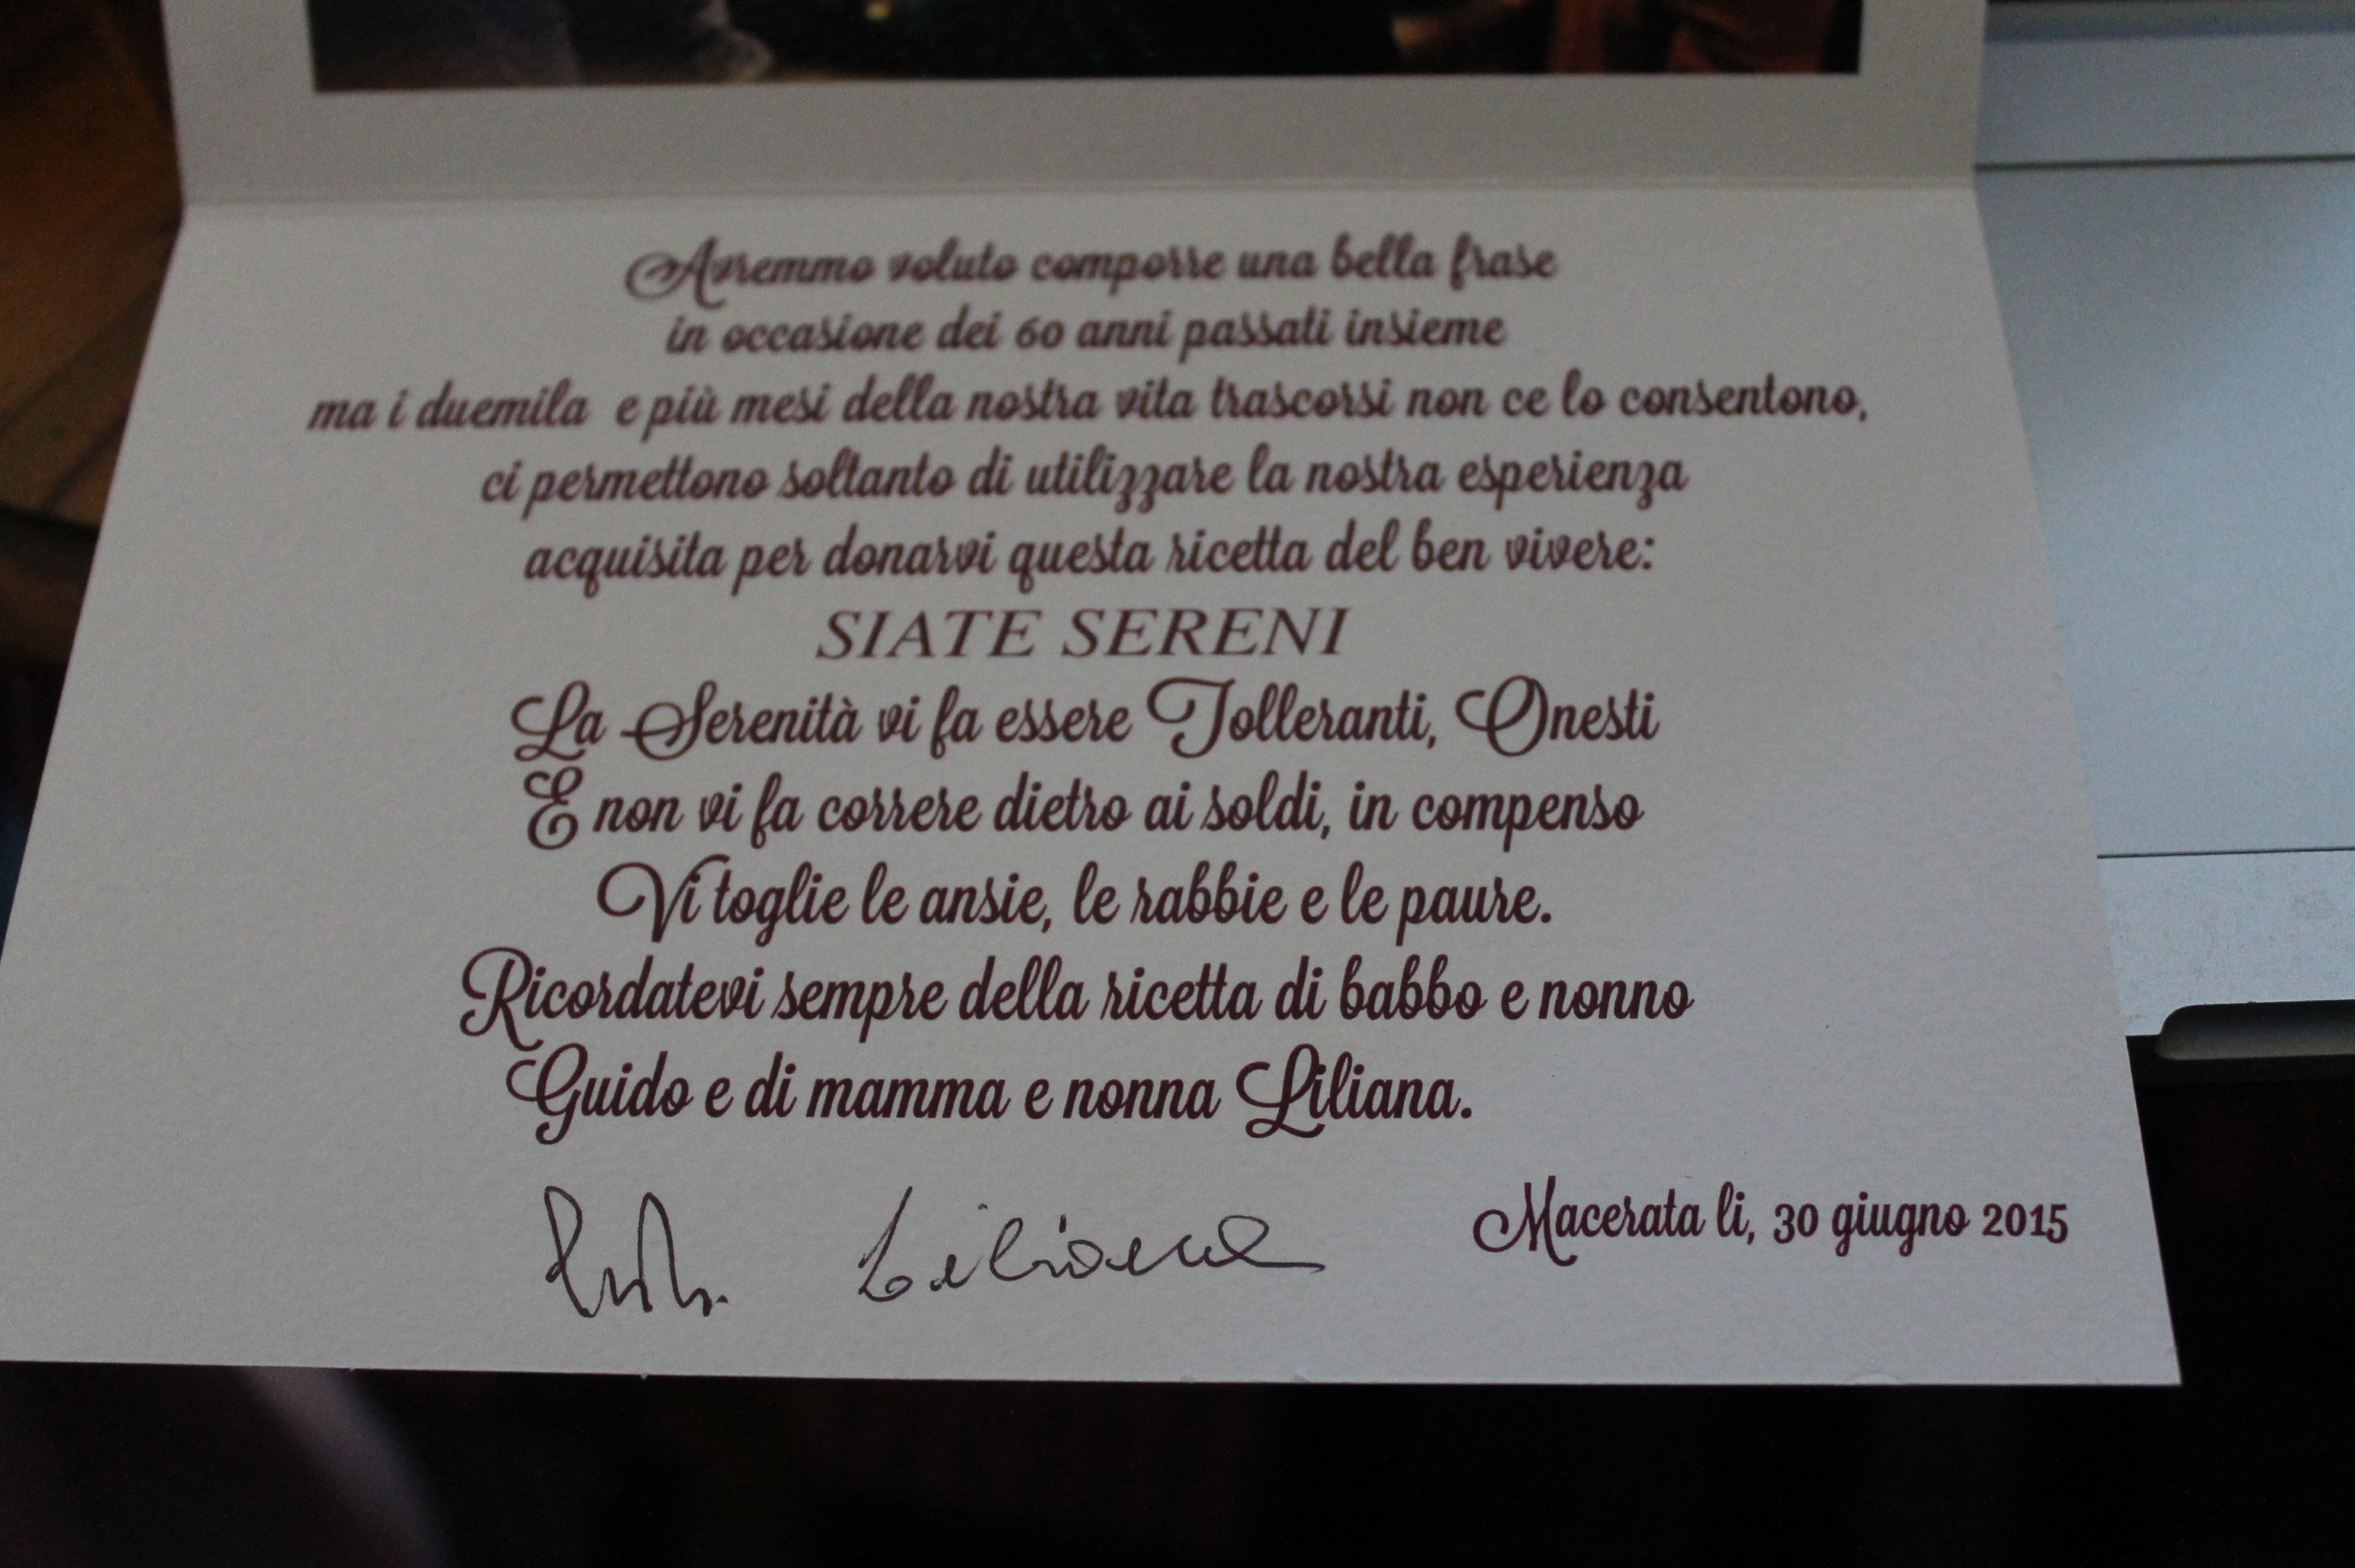 Avremmo voluto comporre una bella frase
in occasione dei 60 anni passati insieme
ma i duemila e più mesi della nostra vita trascorsi non ce lo consentono,
ci permettono soltanto di utilizzare la nostra esperienza
acquisita per donarvi questa ricetta del ben vivere:
SIATE SERENI
La Serenità vi fa essere Tolleranti, Onesti
E non vi fa correre dietro ai soldi, in compenso
Vi toglie le ansie, le rabbie e le paure.
Ricordatevi sempre della ricetta di babbo e nonno
Guido e di mamma e nonna Liliana.
Macerata li, 30 giugno 2015
Liliana